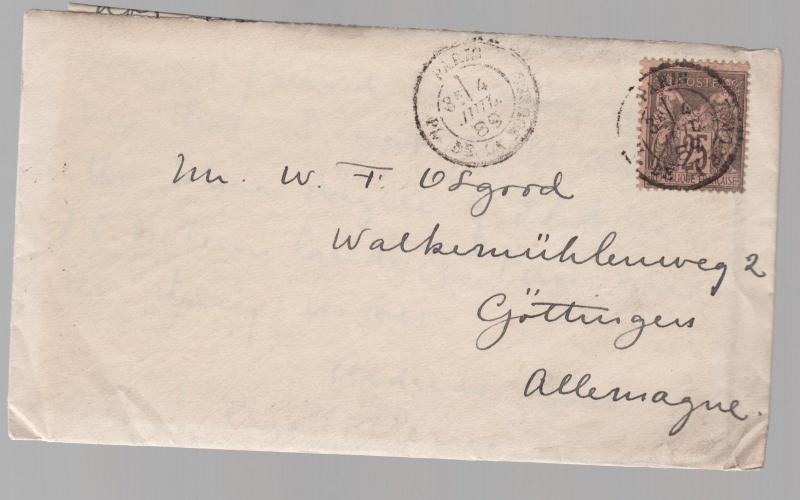 PARIS
4
JUIL
89
PL. DE LA BOURSE
PARIS
POSTES
25
REPUBLIQUE FRANCAISE
Mr. W. F. Osgood
Walkemühlenweg 2
Göttingen
Allemagne.